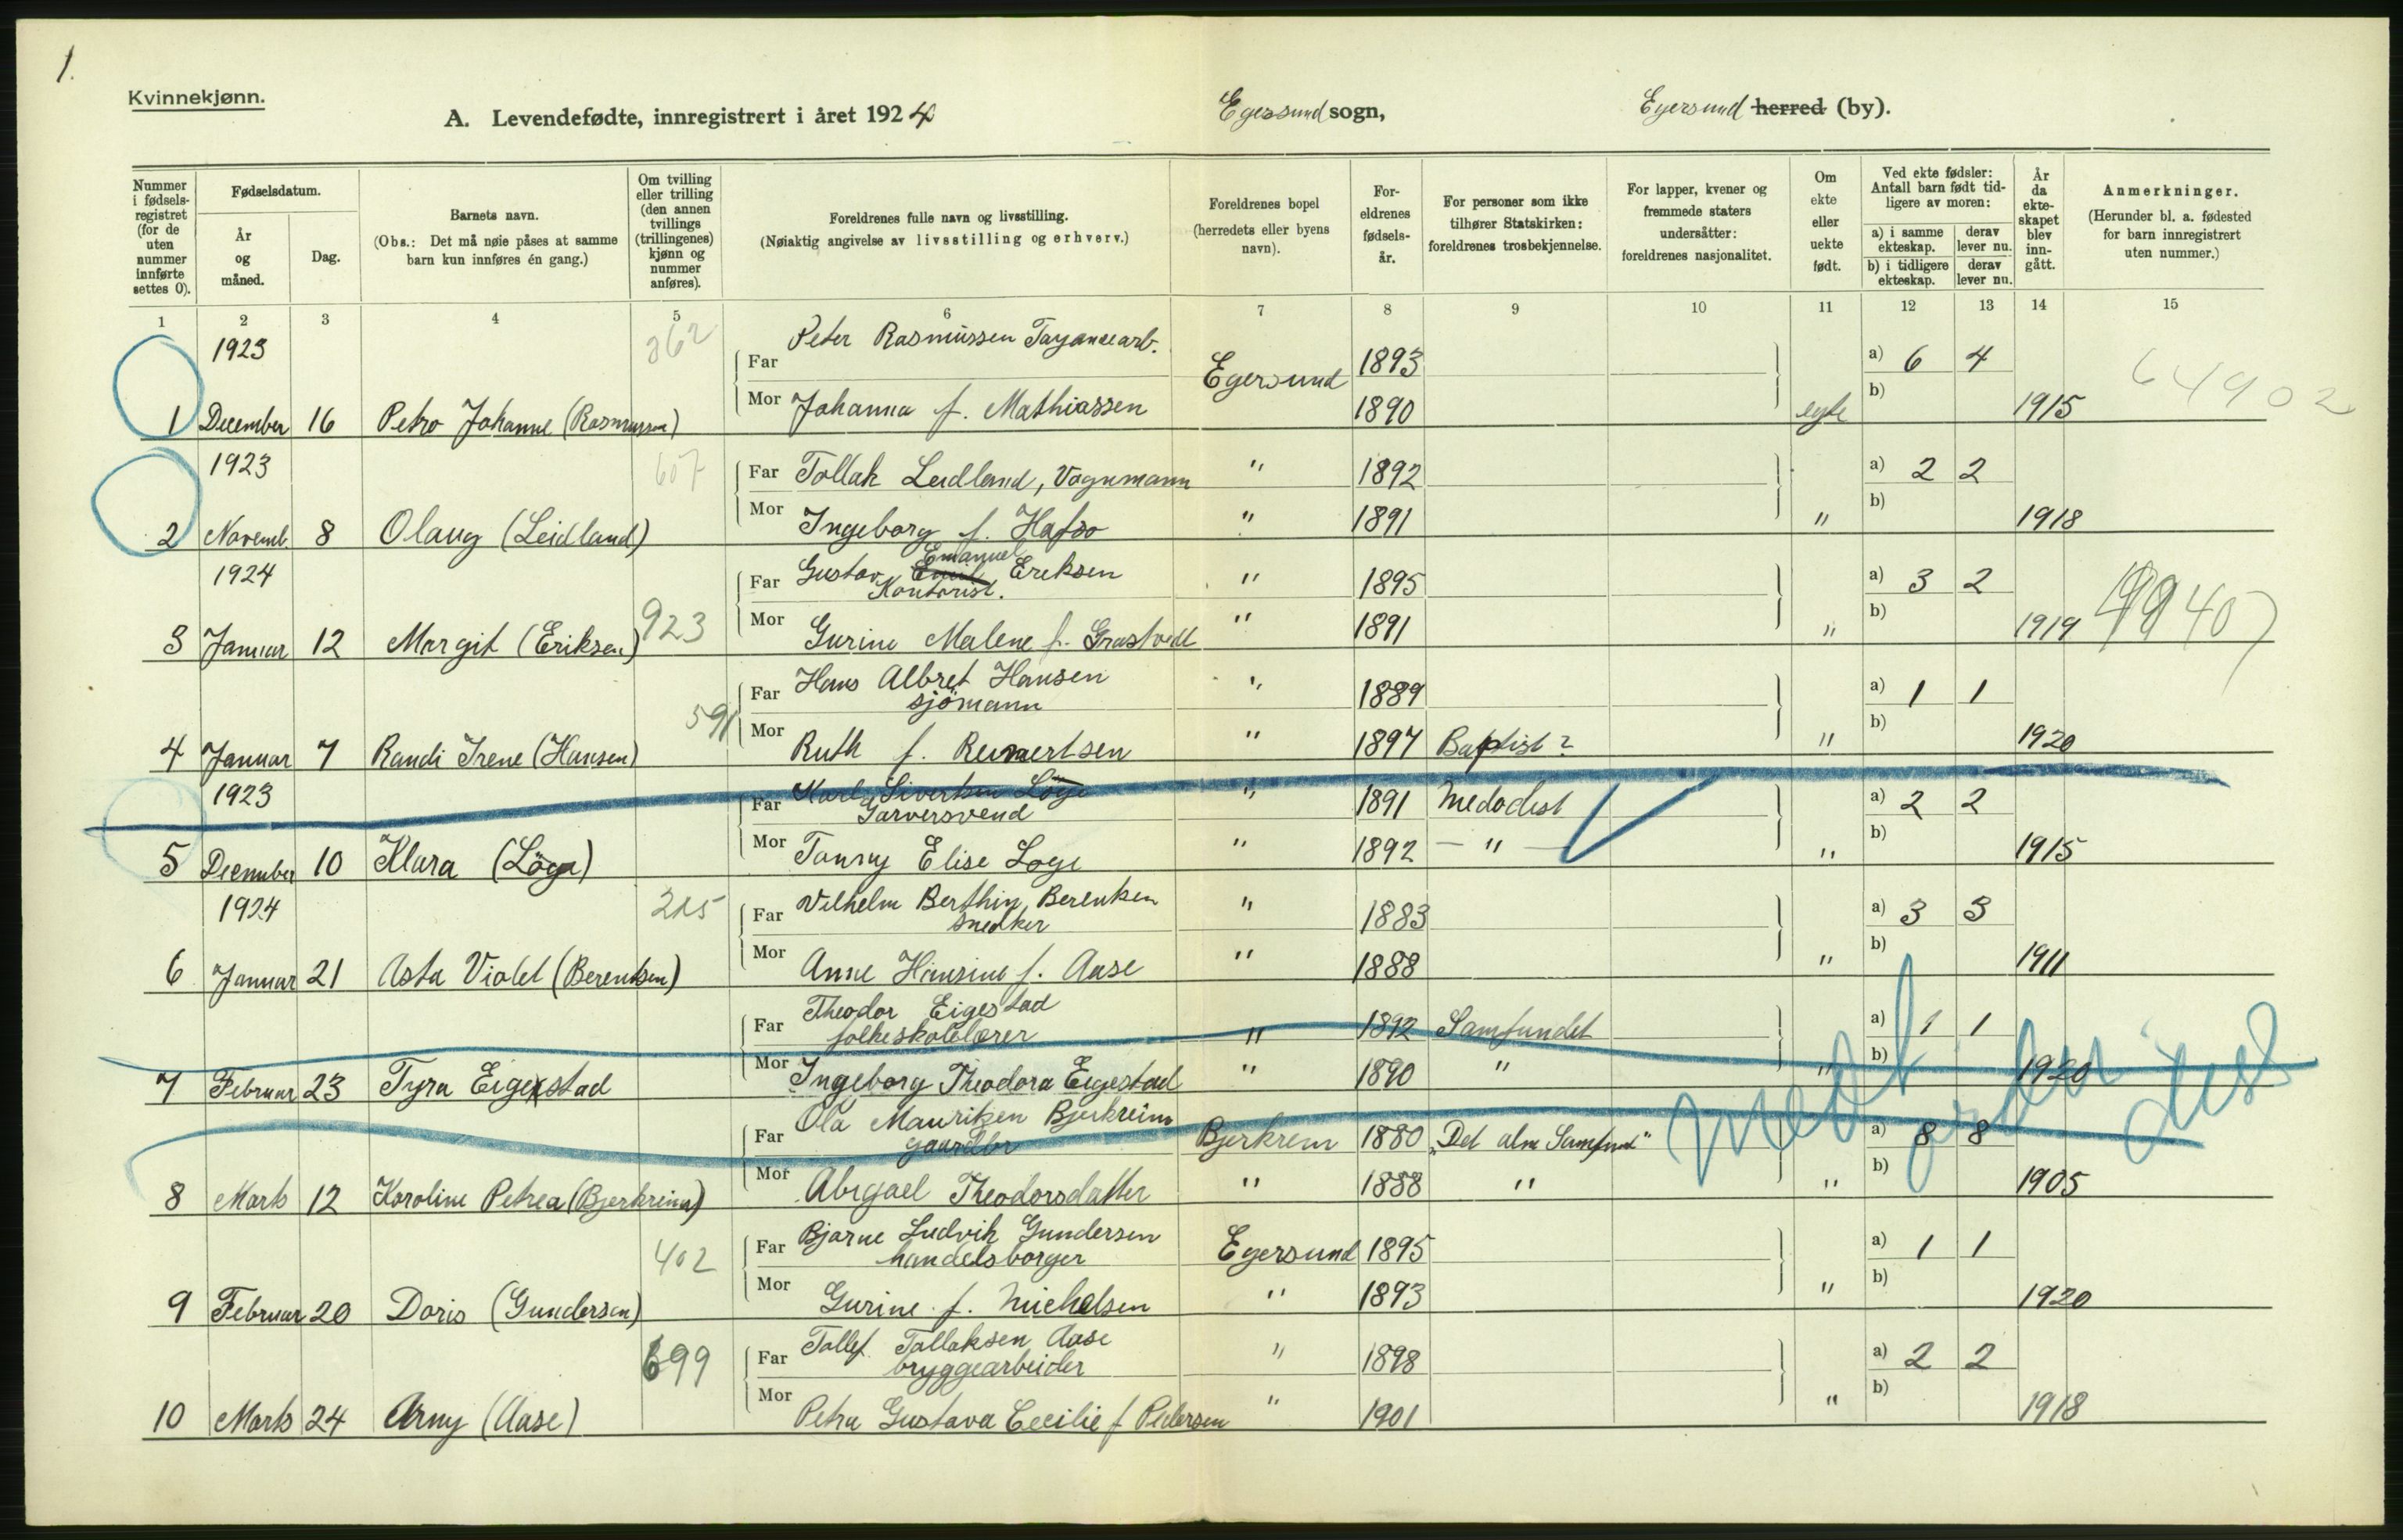 1.
Kvinnekjønn.
A. Levendefødte, innregistrert i året 1924 Egersund sogn, Egersund herred (by).
Nummer i fødsels-registret (for de uten nummer innførte settes 0).
Fødselsdatum.
År og måned.
Dag.
Barnets navn.
(Obs.: Det må nøie påses at samme barn kun innføres én gang.)
Om tvilling eller trilling (den annen tvillings (trillingenes) kjønn og nummer anføres).
Foreldrenes fulle navn og livsstilling.
(Nøiaktig angivelse av livsstilling og erhverv.)
Foreldrenes bopel (herredets eller byens navn).
For-eldrenes fødsels-år.
For personer som ikke tilhører Statskirken: foreldrenes trosbekjennelse.
For lapper, kvener og fremmede staters undersåtter: foreldrenes nasjonalitet.
Om ekte eller uekte født.
Ved ekte fødsler: Antall barn født tid-ligere av moren:
a) i samme ekteskap. derav lever nu.
b) i tidligere ekteskap. derav lever nu.
År da ekte-skapet blev inn-gått.
Anmerkninger.
(Herunder bl. a. fødested for barn innregistrert uten nummer.)
1 2 3 4 5 6 7 8 9 10 11 12 13 14 15
1923 362 Far Peter Rasmussen Fayancearb. Egersund 1893 a) 6 4 64902
1 December 16 Petro Johanne (Rasmussen) Mor Johanna f. Mathiassen 1890 egte b) 1915
1923 607 Far Tollak Leidland, Vognmann " 1892 a) 2 2
2 Novemb. 8 Olaug (Leidland) Mor Ingeborg f. Hafso " 1891 " b) 1918
1924 Far Gustav Emanuel Eriksen " 1895 a) 3 2
Kontorist.
3 Januar 12 Margit (Eriksen) 923 Mor Gurine Malene f. Grastvedt " 1891 " b) 1919 99407
Far Hans Albret Hansen " 1889 a) 1 1
sjömann
4 Januar 7 Randi Irene (Hansen) 591 Mor Ruth f. Reinertsen " 1897 Baptist? " b) 1920
1923 Far Karl Sivertsen Löge " 1891 Medodist a) 2 2
Garversvend
5 December 10 Klara (Löge) Mor Tonny Elise Loge " 1892 – " – " b) 1915
1924 215 Far Vilhelm Berthin Berentsen " 1883 a) 3 3
snedker
6 Januar 21 Asta Violet (Berentsen) Mor Anne Hansine f. Aase " 1888 " b) 1911
Far Theodor Eigestad " 1892 Samfundet a) 1 1
folkeskolelærer
7 Februar 23 Tyra Eigestad Mor Ingeborg Theodora Eigestad " 1890 " " b) 1920
Far Ola Mauritzen Bjerkreim Bjerkrem 1880 „Det alm Samfund" a) 8 8
gaardbr
8 Marts 12 Karoline Petrea (Bjerkreim) Mor Abigael Theodorsdatter " 1888 " " b) 1905
402 Far Bjarne Ludvik Gundersen Egersund 1895 a) 1 1
handelsborger
9 Februar 20 Doris (Gundersen) Mor Gurine f. Michelsen " 1893 " b) 1920
699 Far Tollef Tollaksen Aase " 1898 a) 2 2
bryggearbeider
10 Marts 24 Arny (Aase) Mor Petra Gustava Cecilie f Pedersen " 1901 " b) 1918